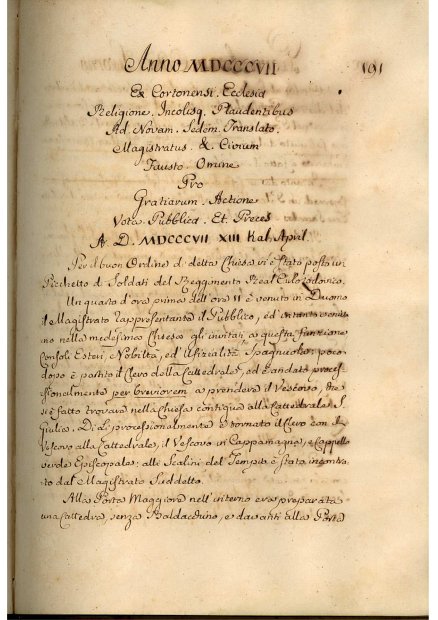 Anno MDCCCVII
191
Ex Cortonensi. Ecclesia
Religione. Incolisq. Plaudentibus
Ad. Novam. Sedem. Translato.
Magistratus. &. Civium
Fausto. Omine
Pro
Gratiarum. Actione
Vota. Pubblica. Et. Preces
A. D. MDCCCVII XIII Kal. April.
Per il buon Ordine di detta Chiesa vi è stato posto un
Picchetto di Soldati del Reggimento Real
Un quarto d'ora prima dell'ora 11 è venuto in Duomo
il Magistrato rappresentante il Pubblico, ed intanto
no nella medesima Chiesa gli invitati a questa funzione
Consoli Esteri, Nobiltà, ed Ufizialità Spagnuola; poco
dopo è partito il Clero della Cattedrale, ed andato proces-
sionalmente per breviorem a prendere il Vescovo, che
si è fatto trovare nella Chiesa contigua alla Cattedrale, S.
Giulia. Di lì processionalmente è tornato il Clero con il
Vescovo alla Cattedrale, il Vescovo in Cappamagna, e Cappello
verde Episcopale; alli Scalini del Tempio è stato incontra-
to dal Magistrato Suddetto.
Alla Porta Maggiore nell'interno era preparata
una Cattedra, senza Baldacchino, e davanti alla Porta